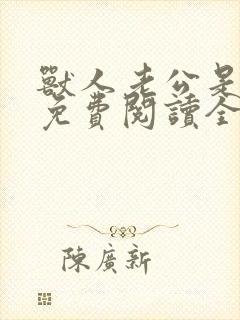 獸人老公是
免費閱讀全
陳廣新